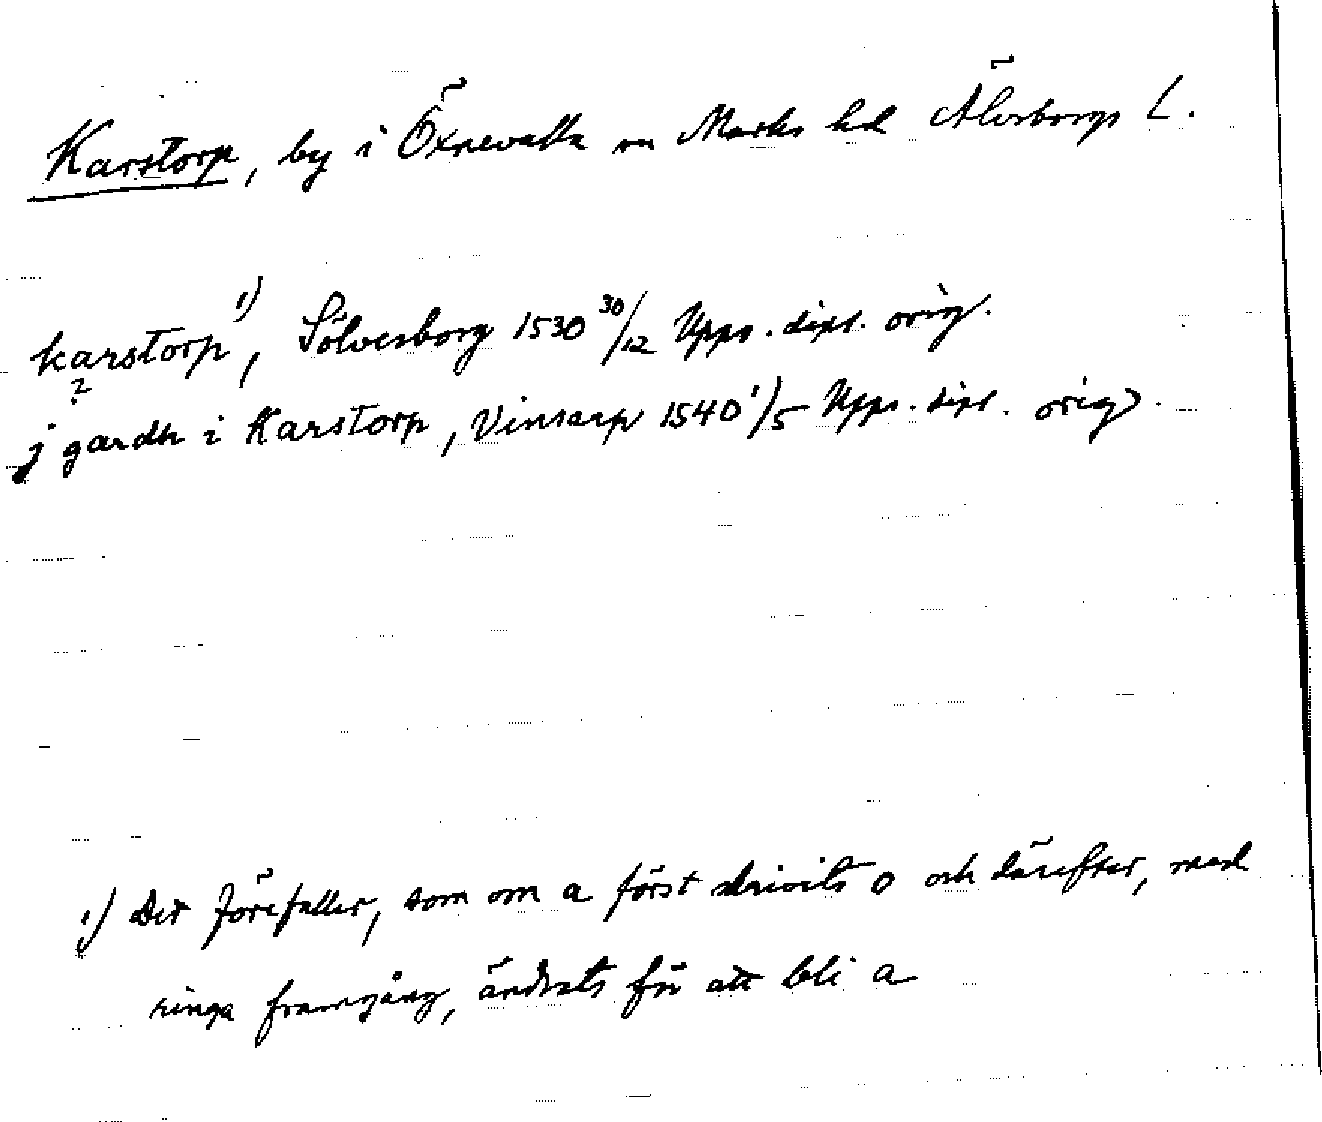 Karstorp, by i Öxnevalla sn Marks hd Älvsborgs l.
karstorp 1), Sölvesborg 1530 30/12 Upps. dipl. orig.
?
j gardh i Karstorp, Vinsarp 1540 1/5 Upps. dipl. orig.
1) Det förefaller, som om a först skrivits o och därefter, med
ringa framgång, ändrats för att bli a